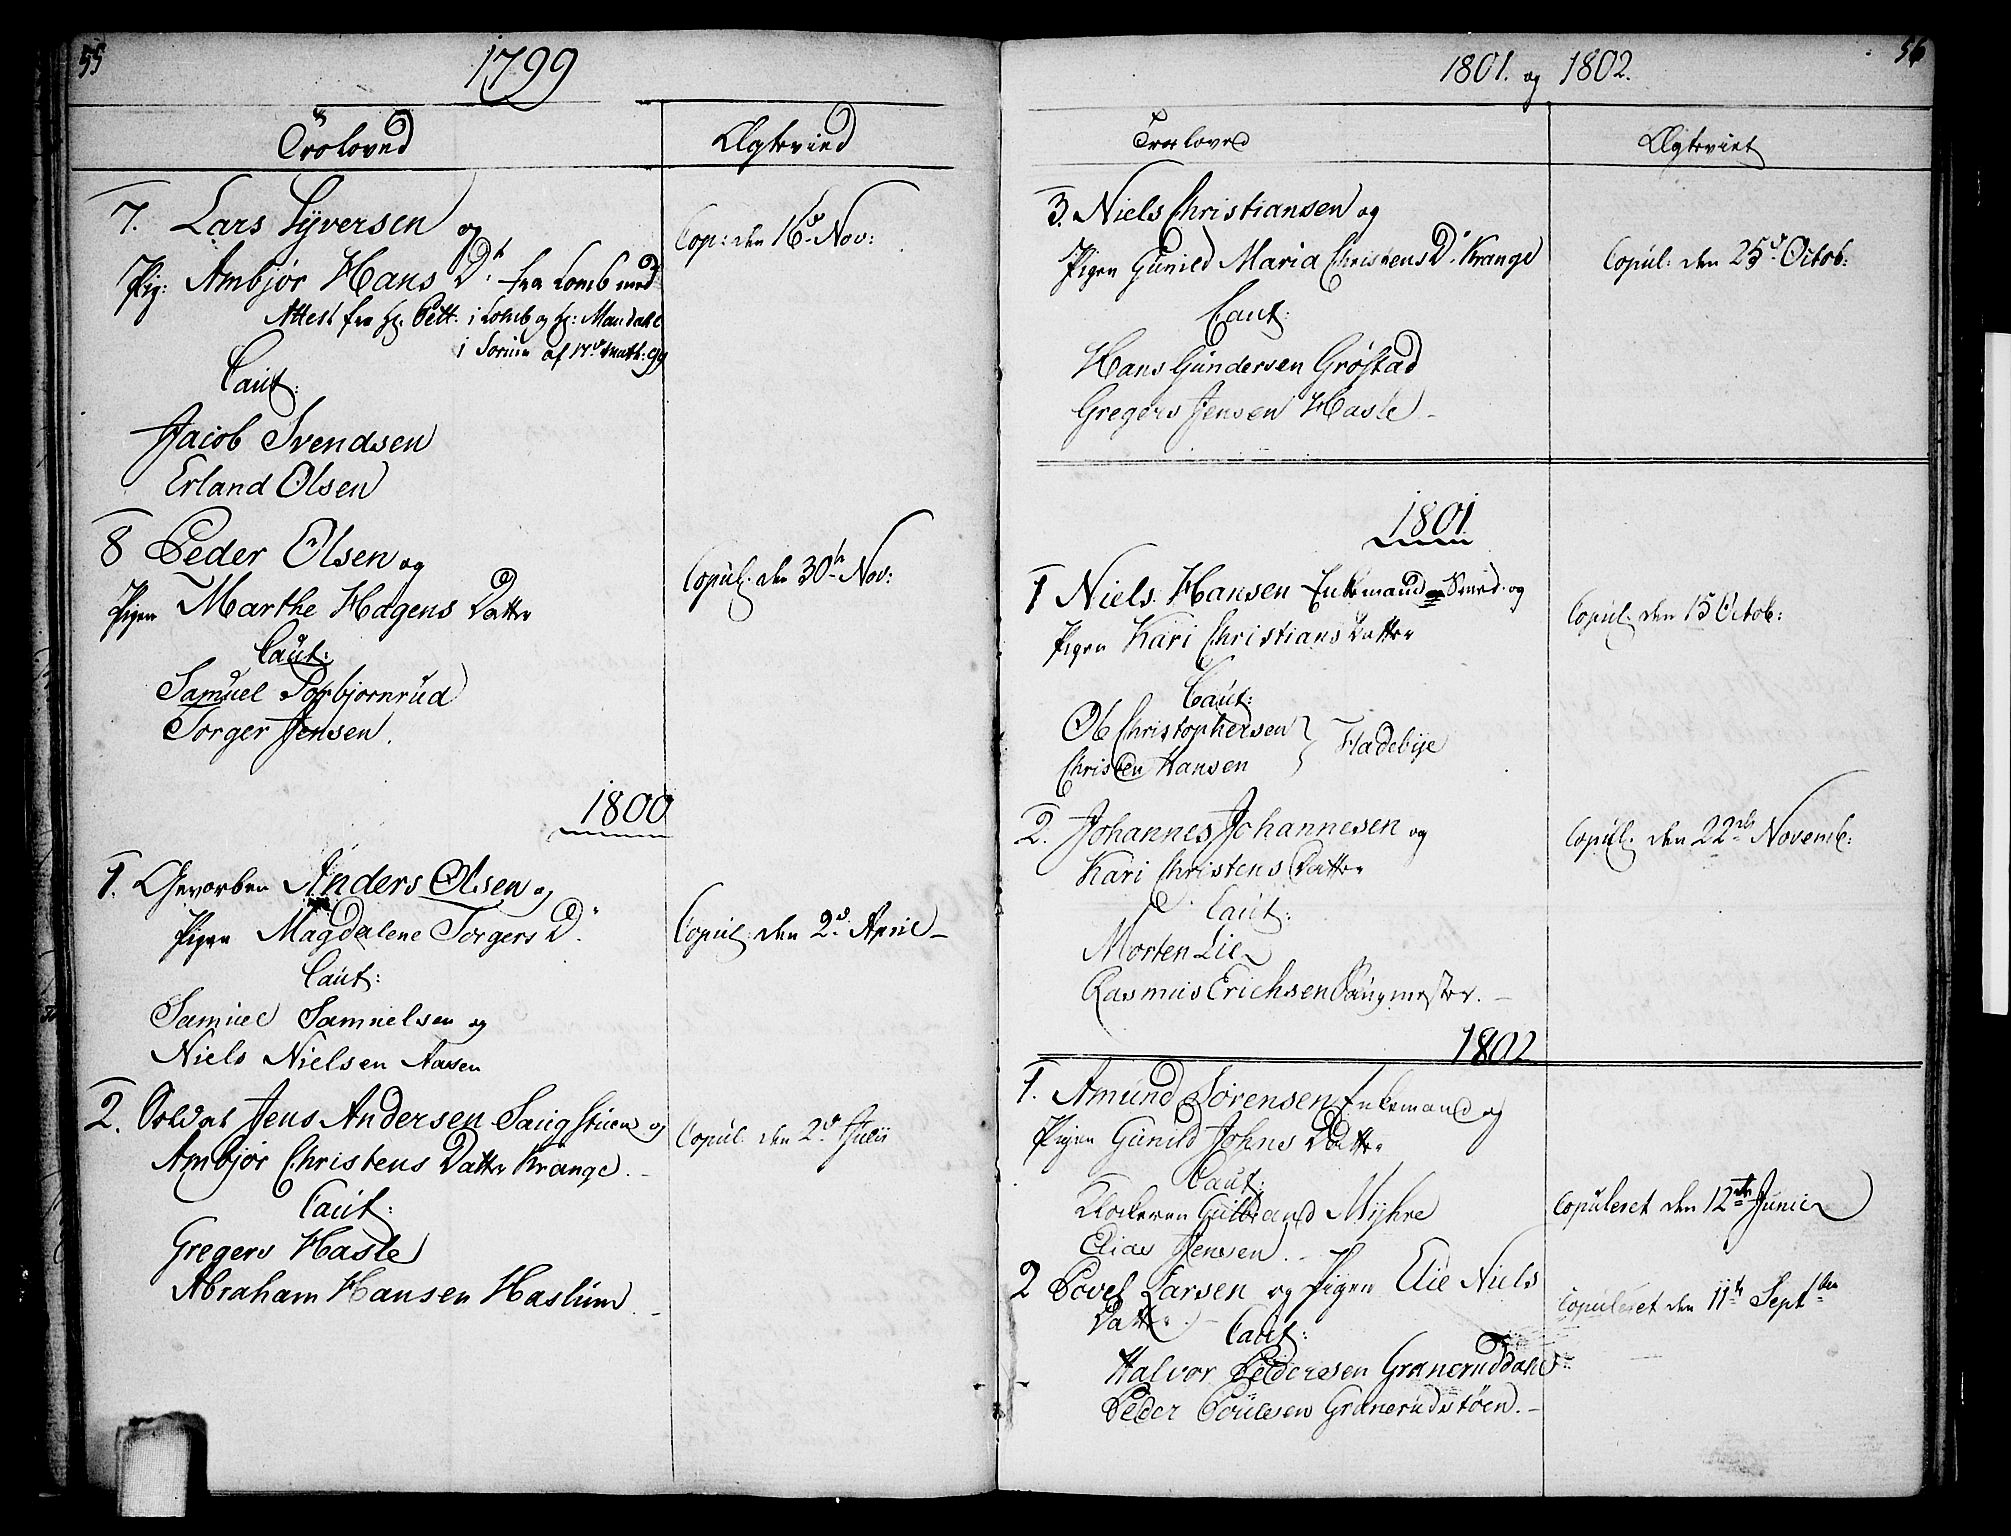 55
1799
Troloved
Ægtevied
7. Lars Syversen og
Pig: Ambjør Hans Dr fra Lomb med
Attest fra Hr. Pett. i Lomb og Hr: Mandahl
i Sorum af 17de Martii 99
Caut:
Jacob Svendsen
Erland Olsen
Cop: den 16de Nov:
8 Peder Olsen og
Pigen Marthe Hagens Datter
Caut:
Samuel Torbjornrud
Torger Jensen.
Copul. den 30te Nov:
1800
1. Gevorben Anders Olsen og
Pigen Magdalene Torgers D.
Caut:
Samuel Samuelsen og
Niels Nielsen Aasen
Copul: den 2d. April
2. Soldat Jens Andersen Saugstuen og
Ambjør Christens Datter Krange.
Caut:
Gregers Hasle
Abraham Hansen Haslum.
Copul. den 2d. Julii
56
1801. og 1802.
Troloved
Ægteviet
3. Niels Christiansen og
Pigen Gunild Maria Christens Dr. Krange
Caut:
Hans Gundersen Grøstad
Gregers Jensen Hasle
Copul: den 25de Octob:
1801
1 Niels Hansen Enkemand Smed og
Pigen Kari Christians Datter
Caut:
Ole Christophersen
Christen Hansen } Fladebye
Copul. den 15 Octob:
2. Johannes Johannesen og
Kari Christens Datter
Caut:
Morten Lie
Rasmus Erichsen Saugmester.
Copul. den 22de Novemb:
1802
1. Amund Sørensen Enkemand og
Pigen Gunild Johns Datter
Caut:
Klokeren Gulbrand Myhre
Elias Jensen.
Copuleret den 12te Junii
2 Povel Larsen og Pigen Elie Niels
Datter.
Caut:
Halvor Pedersen Graneruddahl
Peder Poulsen Granerudstøen.
Copuleret den 11te Septbr